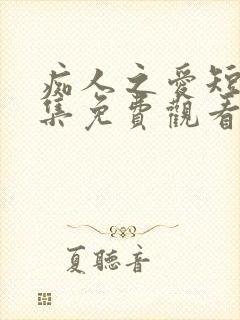 痴人之愛短
集免費觀看
夏聽音